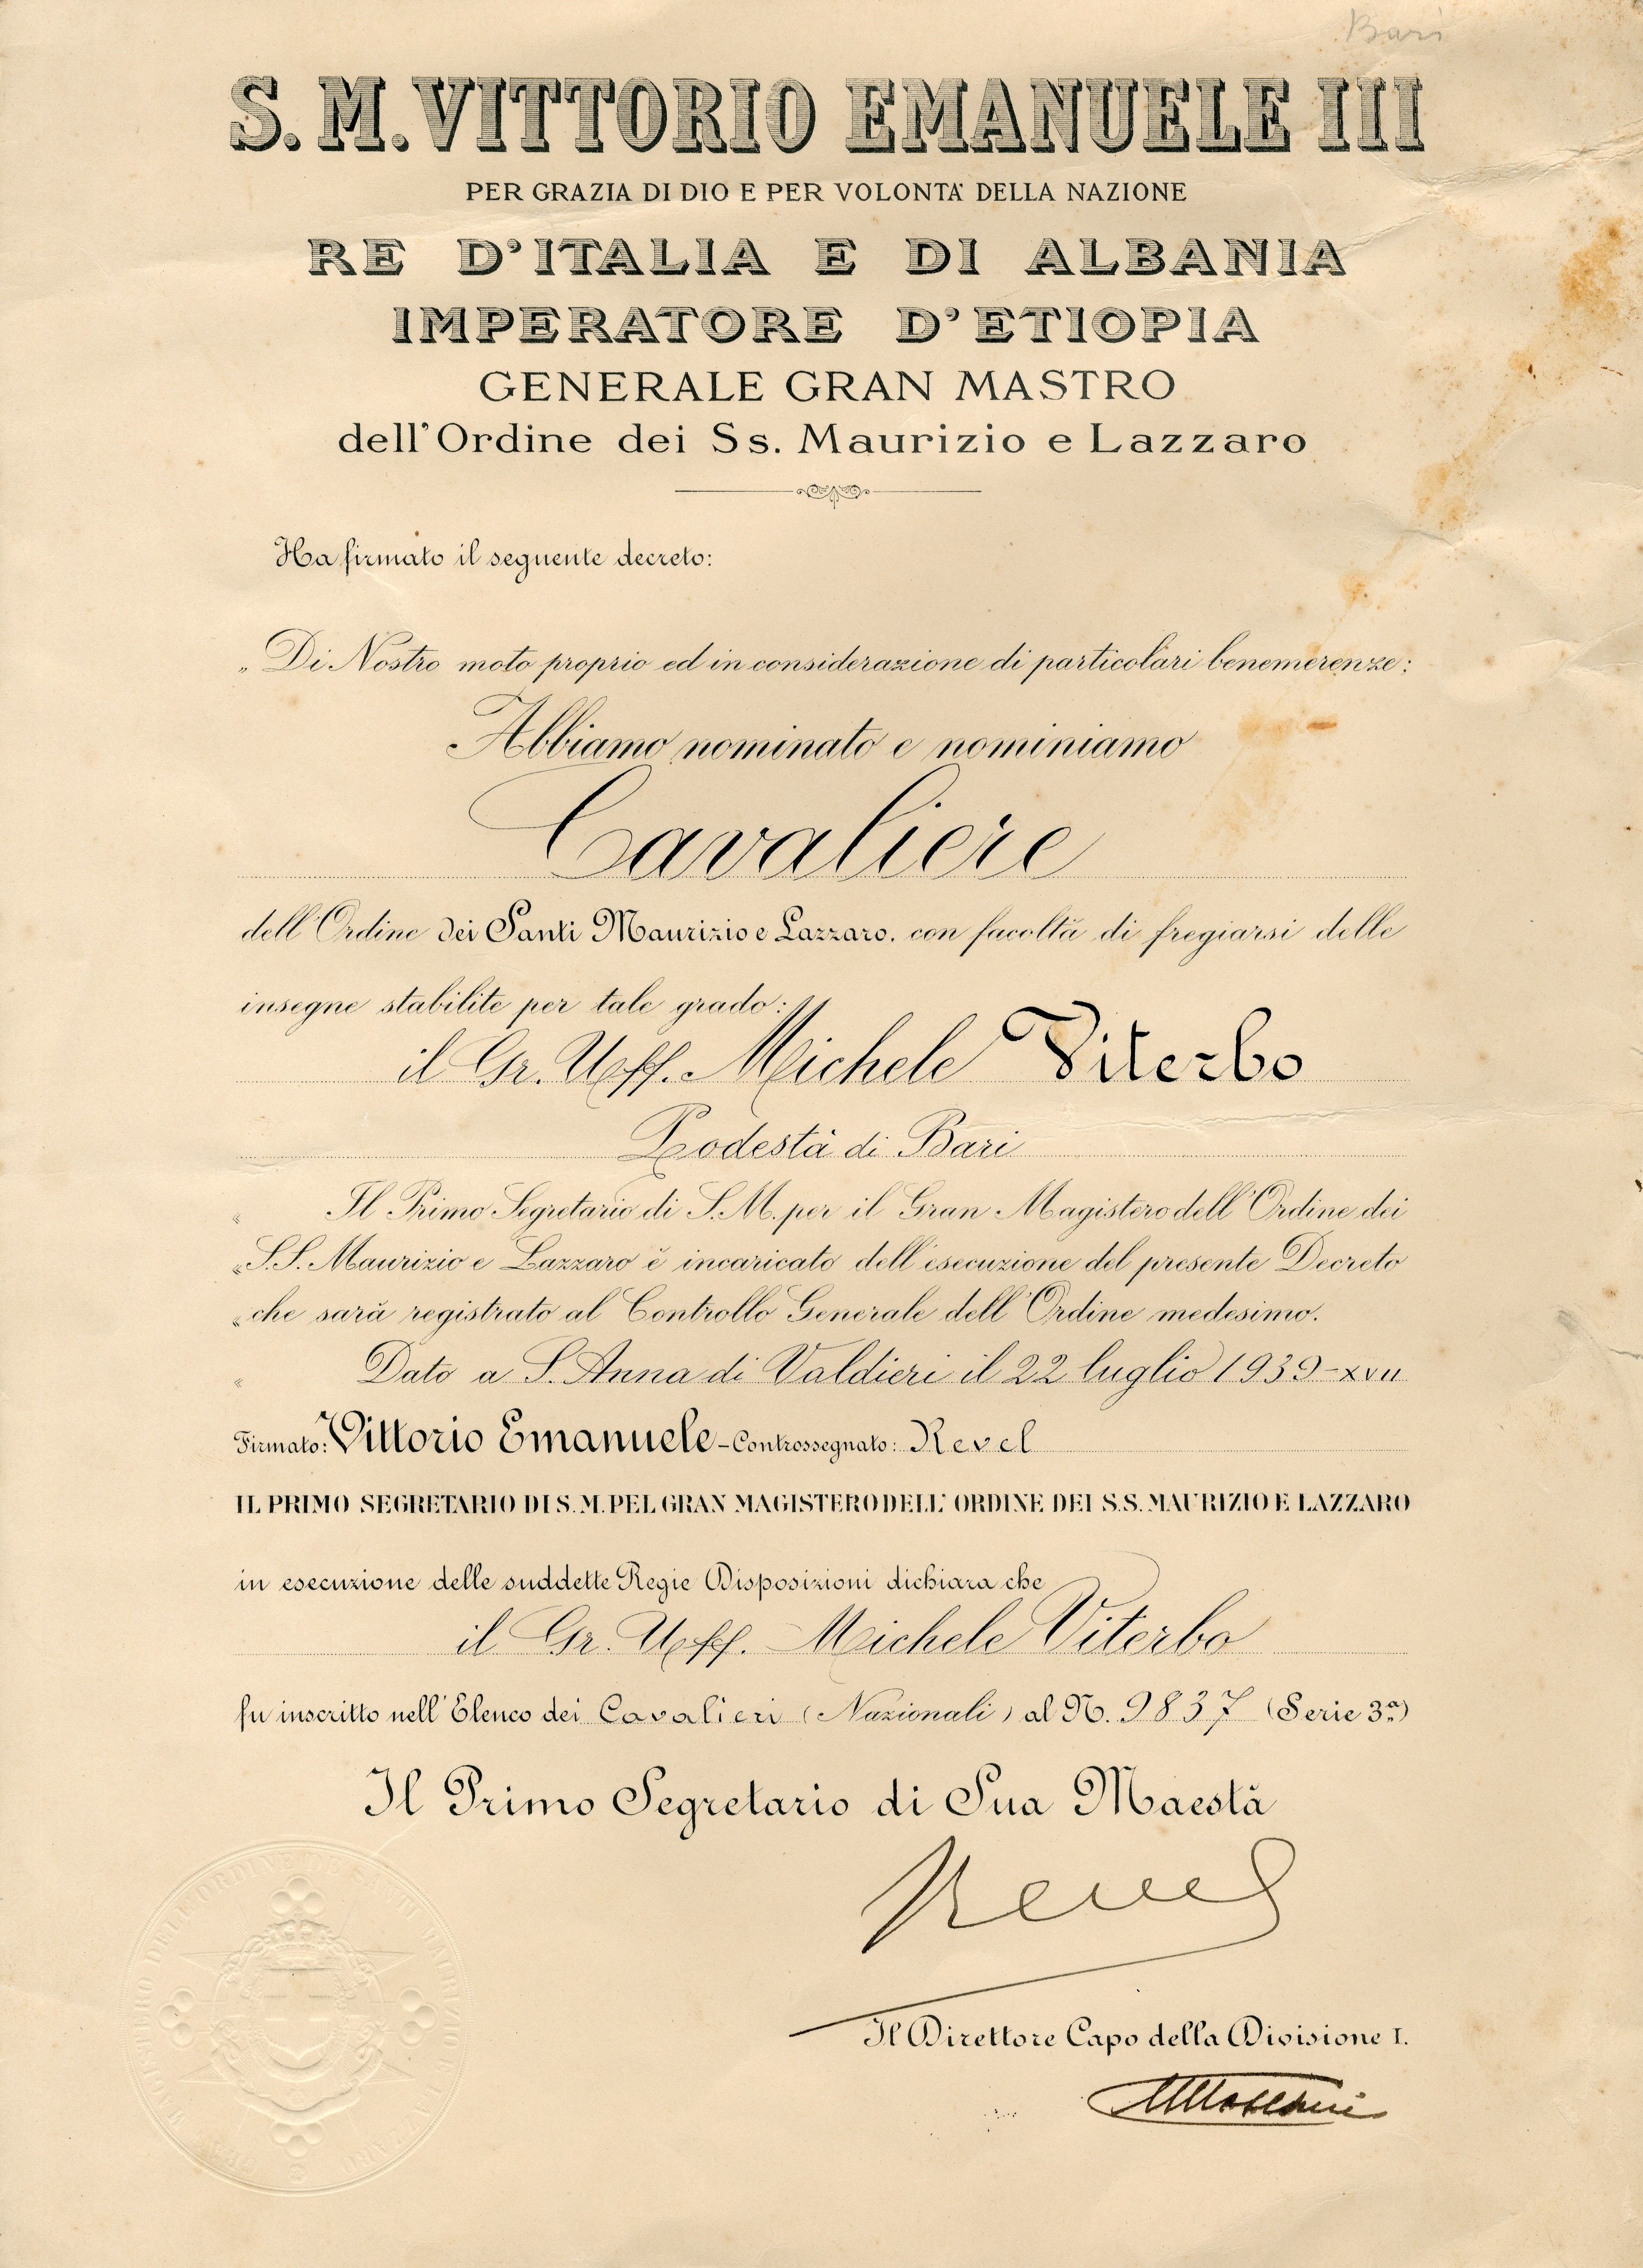 Bari
S. M. VITTORIO EMANUELE III
PER GRAZIA DI DIO E PER VOLONTA' DELLA NAZIONE
RE D'ITALIA E DI ALBANIA
IMPERATORE D'ETIOPIA
GENERALE GRAN MASTRO
dell'Ordine dei Ss. Maurizio e Lazzaro
Ha firmato il seguente decreto:
„ Di Nostro moto proprio ed in considerazione di particolari benemerenze:
Abbiamo nominato e nominiamo
Cavaliere
dell'Ordine dei Santi Maurizio e Lazzaro, con facoltà di fregiarsi delle
insegne stabilite per tale grado:
il Gr. Uff. Michele Viterbo
Podestà di Bari
« Il Primo Segretario di S. M. per il Gran Magistero dell'Ordine dei
« S.S. Maurizio e Lazzaro è incaricato dell'esecuzione del presente Decreto
« che sarà registrato al Controllo Generale dell'Ordine medesimo.
« Dato a S. Anna di Valdieri il 22 luglio 1939-XVII
Firmato: Vittorio Emanuele - Controssegnato: Revel
IL PRIMO SEGRETARIO DI S. M. PEL GRAN MAGISTERO DELL' ORDINE DEI S.S. MAURIZIO E LAZZARO
in esecuzione delle suddette Regie Disposizioni dichiara che
il Gr. Uff. Michele Viterbo
fu inscritto nell'Elenco dei Cavalieri (Nazionali) al N. 9837 (Serie 3ª)
Il Primo Segretario di Sua Maestà
Revel
Il Direttore Capo della Divisione I.